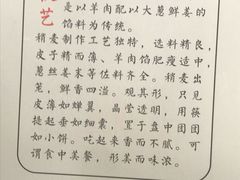 艺
是以羊肉配以大葱鲜姜的
馅料为传统。
稍麦制作工艺独特，选料精良，
皮子精而薄、羊肉馅肥瘦适中，
葱丝姜末等佐料齐全。稍麦出
笼，鲜香四溢。观其形，只见
皮薄如蝉翼，晶莹透明，用筷
提起垂如细囊，置于盘中团团
如小饼。吃起来香而不腻。可
谓食中美餐，形美而味浓。